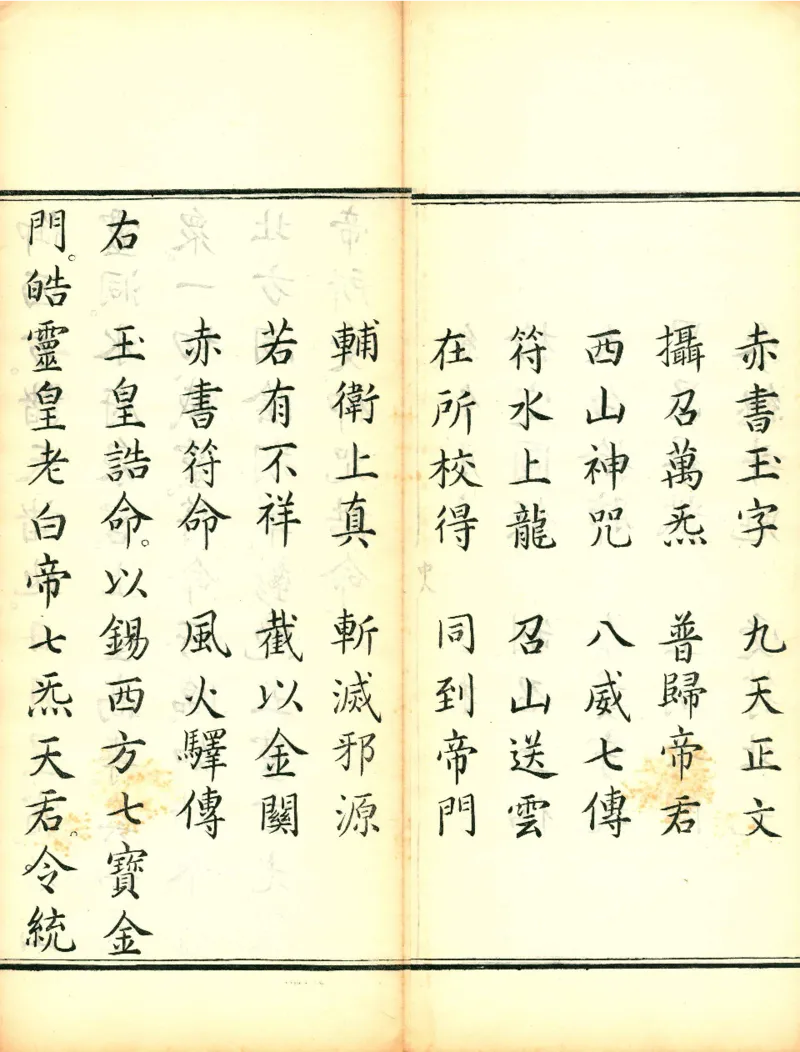 赤書玉字　九天正文
攝召萬炁　普歸帝君
西山神咒　八威七傳
符水上龍　召山送雲
在所校得　同到帝門
輔衛上真　斬滅邪源
若有不祥　截以金關
赤書符命　風火驛傳
右　玉皇誥命。以錫西方七寶金
門。皓靈皇老白帝七炁天君。令統